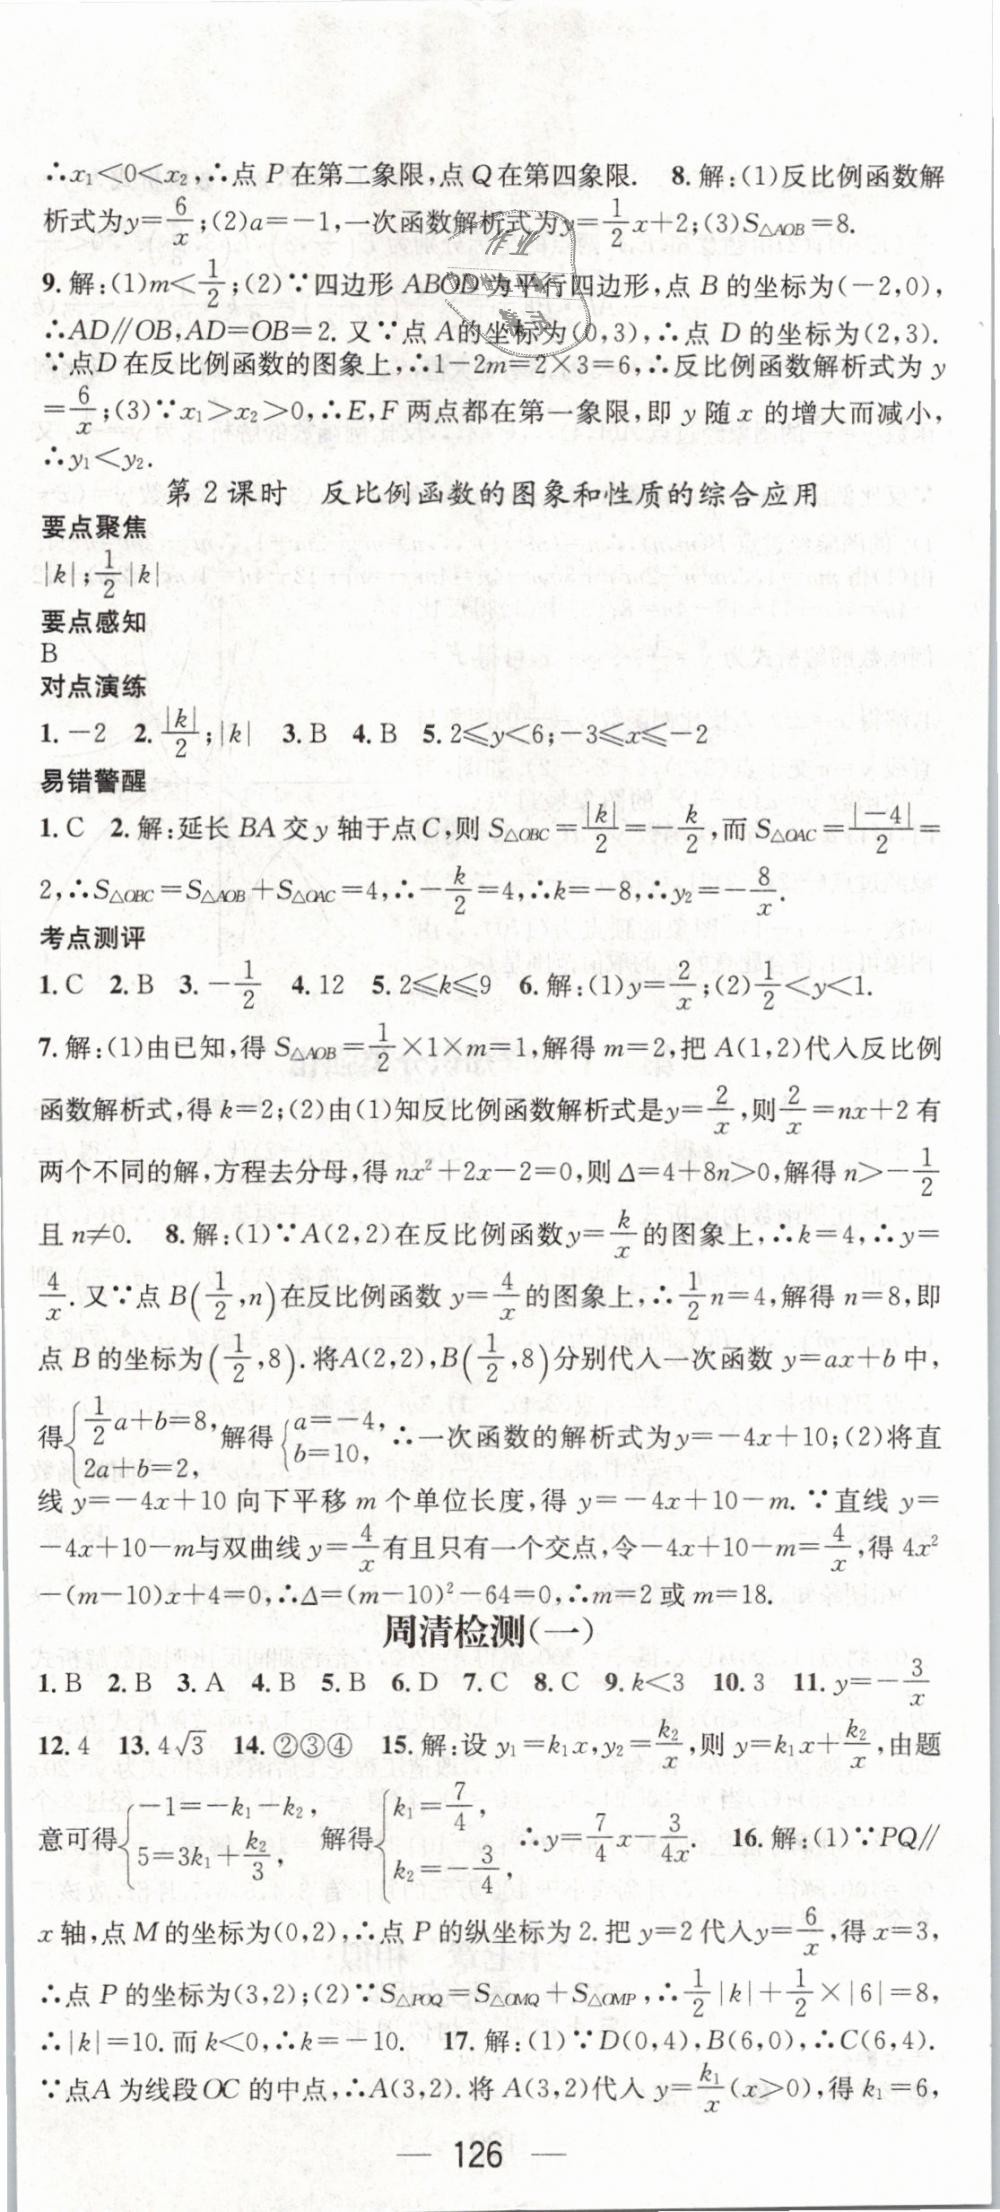 ∴x₁<0<x₂,∴点 P 在第二象限,点 Q 在第四象限. 8.解:(1)反比例函数解
析式为y=6/x;(2)a=-1,一次函数解析式为y=1/2x+2;(3)S△AOB=8.
9.解:(1)m<1/2;(2)∵四边形 ABOD 为平行四边形,点 B 的坐标为(-2,0),
∴AD//OB,AD=OB=2.又∵点 A的坐标为(0,3),∴点 D 的坐标为(2,3).
∵点D 在反比例函数的图象上,∴1-2m=2×3=6,∴反比例函数解析式为 y
=6/x;(3)∵x₁>x₂>0,∴E,F 两点都在第一象限,即 y 随 x 的增大而减小,
∴y₁<y₂.
第 2 课时 反比例函数的图象和性质的综合应用
要点聚焦
|k|;1/2|k|
要点感知
B
对点演练
1.-2 2.|k|/2;|k| 3.B 4.B 5.2≤y<6;-3≤x≤-2
易错警醒
1.C 2.解:延长 BA 交 y 轴于点 C,则 S△OBC=|k|/2=-k/2,而 S△OAC=|-4|/2=
2,∴S△OBC=S△AOB+S△OAC=4,∴-k/2=4,∴k=-8,∴y₂=-8/x.
考点测评
1.C 2.B 3.-1/2 4.12 5.2≤k≤9 6.解:(1)y=2/x;(2)1/2<y<1.
7.解:(1)由已知,得 S△AOB=1/2×1×m=1,解得 m=2,把 A(1,2)代入反比例
函数解析式,得 k=2;(2)由(1)知反比例函数解析式是y=2/x,则2/x=nx+2 有
两个不同的解,方程去分母,得 nx²+2x-2=0,则 Δ=4+8n>0,解得 n>-1/2
且 n≠0. 8.解:(1)∵A(2,2)在反比例函数y=k/x的图象上,∴k=4,∴y=
4/x.又∵点 B(1/2,n)在反比例函数 y=4/x的图象上,∴1/2n=4,解得 n=8,即
点 B 的坐标为(1/2,8).将A(2,2),B(1/2,8)分别代入一次函数 y=ax+b 中,
得{1/2a+b=8,2a+b=2,解得{a=-4,b=10,∴一次函数的解析式为y=-4x+10;(2)将直
线 y=-4x+10 向下平移 m 个单位长度,得 y=-4x+10-m.∵直线 y=
-4x+10-m与双曲线 y=4/x有且只有一个交点,令-4x+10-m=4/x,得 4x²
-(m-10)x+4=0,∴Δ=(m-10)²-64=0,∴m=2 或 m=18.
周清检测(一)
1.B 2.B 3.A 4.B 5.B 6.D 7.C 8.C 9.k<3 10.3 11.y=-3/x
12.4 13.4√3 14.②③④ 15.解:设 y₁=k₁x,y₂=k₂/x,则 y=k₁x+k₂/x,由题
意可得{-1=-k₁-k₂,5=3k₁+k₂/3,解得{k₁=7/4,k₂=-3/4,∴y=7/4x-3/4x. 16.解:(1)∵PQ//
x 轴,点 M 的坐标为(0,2),∴点 P 的纵坐标为 2.把 y=2 代入y=6/x,得 x=3,
∴点 P 的坐标为(3,2);(2)∵S△POQ=S△OMQ+S△OMP,∴1/2|k|+1/2×|6|=8,
∴|k|=10.而 k<0,∴k=-10. 17.解:(1)∵D(0,4),B(6,0),∴C(6,4).
∵点A 为线段OC 的中点,∴A(3,2).将 A(3,2)代入 y=k₁/x(x>0),得 k₁=6,
— 126 —